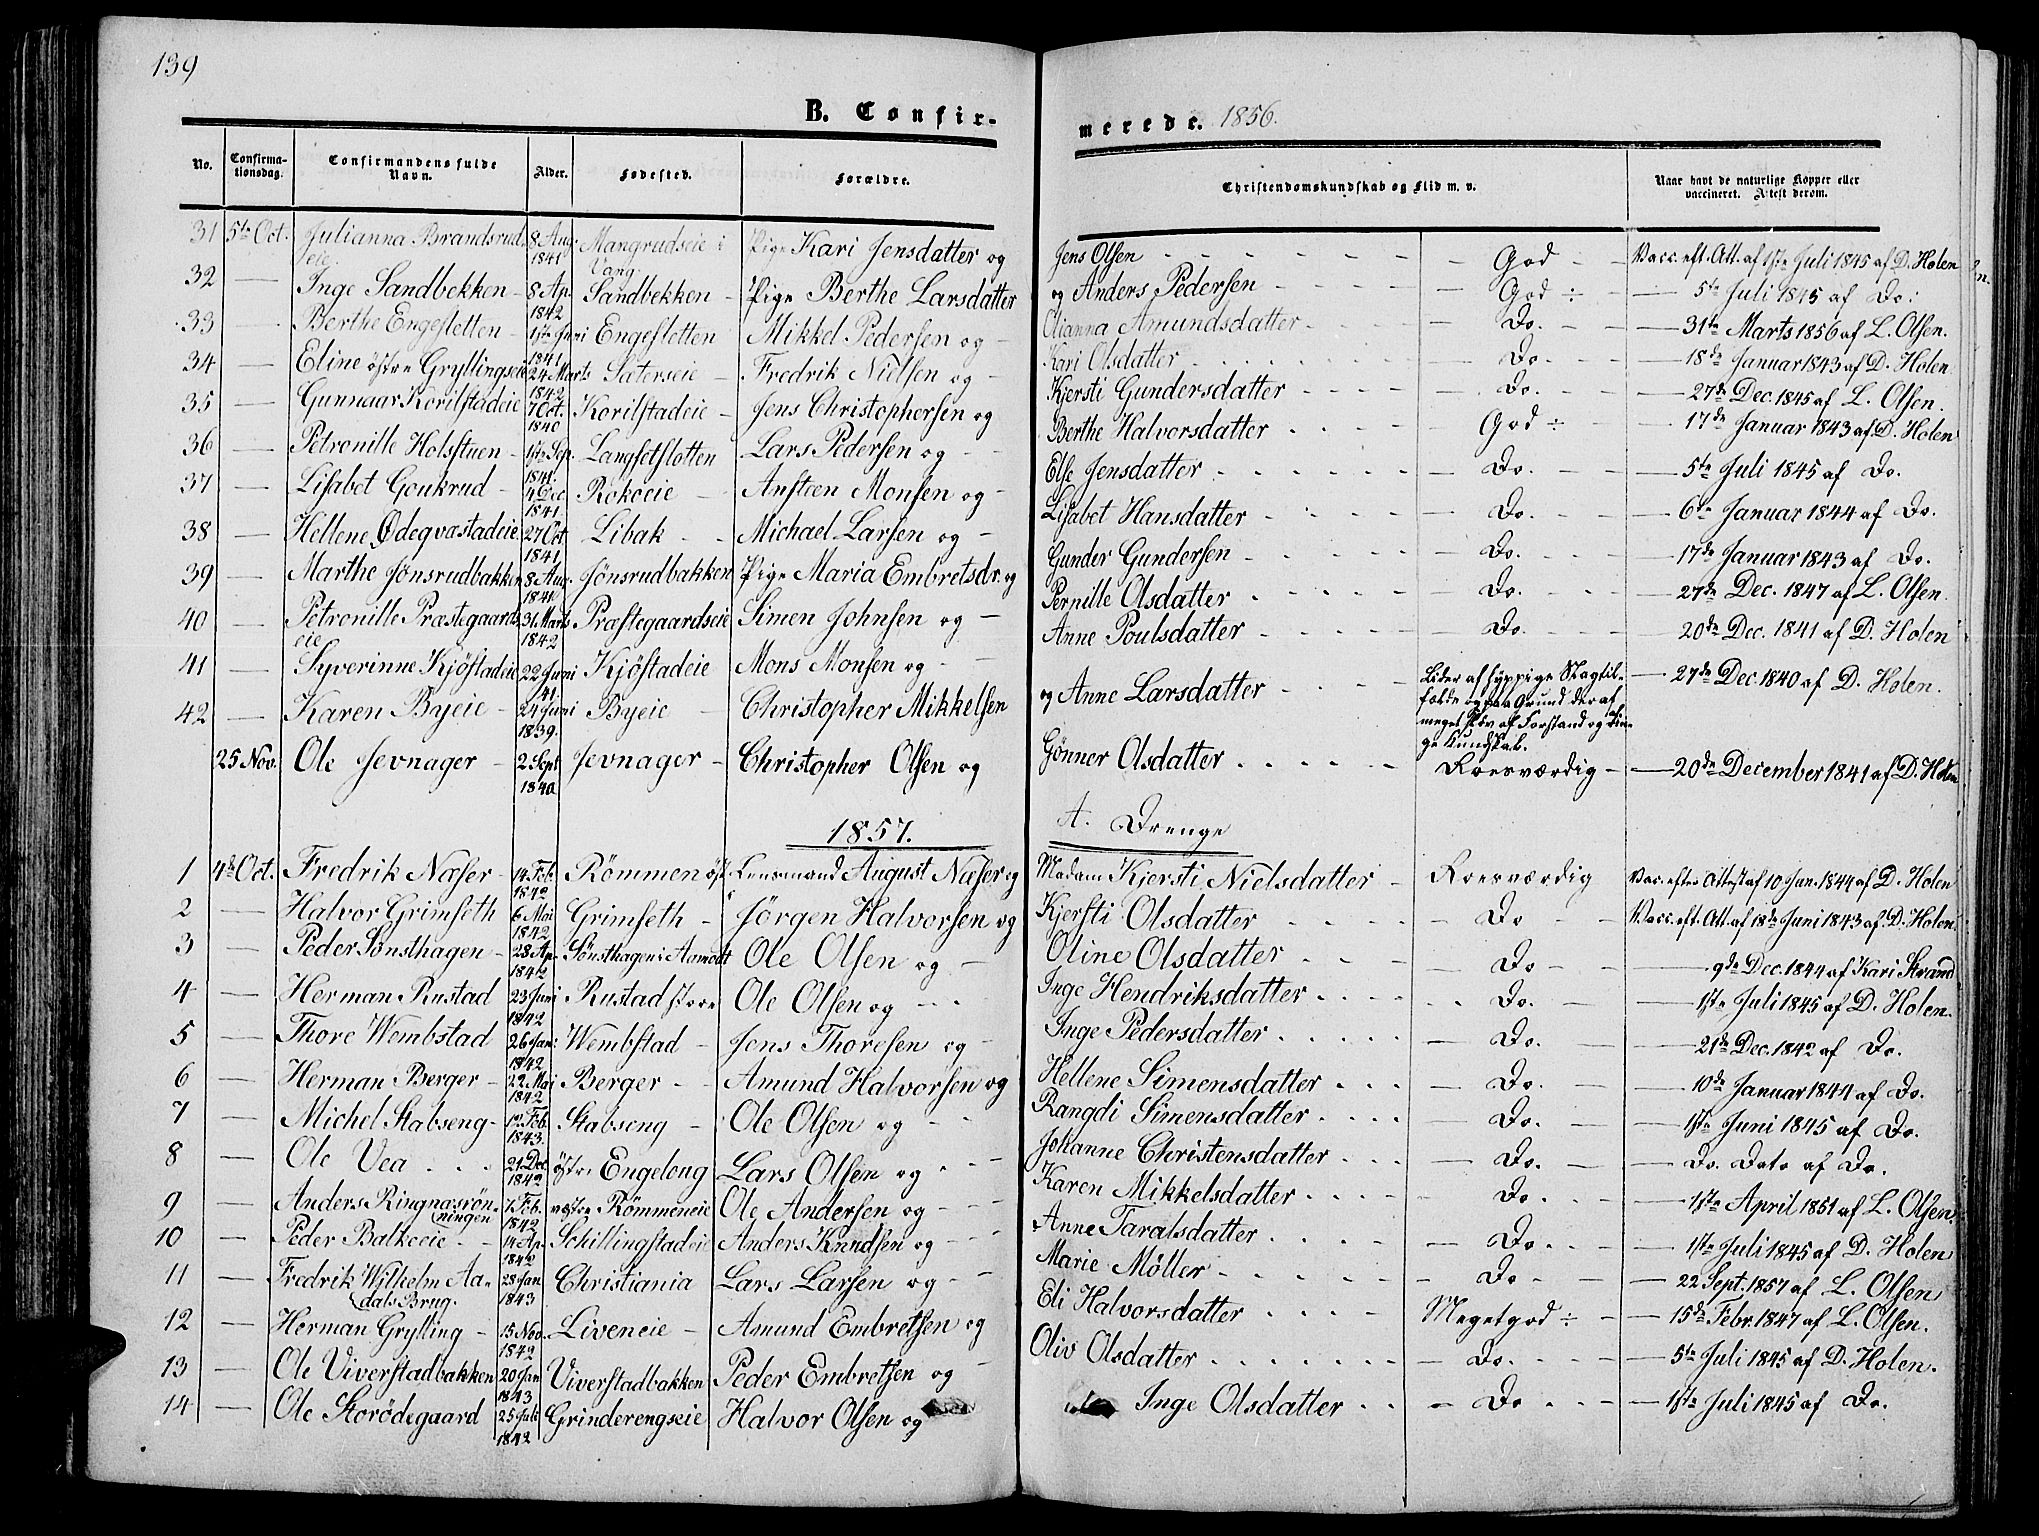 139
B. Confir- merede. 1856.
No. Confirma-tionsdag. Confirmandens fulde Navn. Alder. Fødested. Forældre. Christendomskundskab og Flid m. v. Naar havt de naturlige Kopper eller vaccineret. Attest derom.
31 5te Oct. Julianna Brandsrud eie. 8 Aug 1841 Mangrudseie i Vang. Pige Kari Jensdatter og Jens Olsen God Vacc. eft. Att. af 1ste Juli 1845 af D. Holen
32 Inge Sandbekken 8 Ap. 1842 Sandbekken Pige Berthe Larsdatter og Anders Pedersen God ÷ 5te Juli 1845 af Do:
33 Berthe Engesletten 1ste Juni 1841 Engesletten Mikkel Pedersen og Olianna Amundsdatter Do. 31te Marts 1856 af L. Olsen.
34 Eline østre Gryllingseie 24 Marts 1842 Sæterseie Fredrik Nielsen og Kari Olsdatter Do. 18de Januar 1843 af D. Holen
35 Gunnaar Korilstadeie 7 Oct. 1840 Korilstadeie Jens Christophersen og Kjersti Gundersdatter Do. 27de Dec. 1845 af L. Olsen.
36 Petronille Holsstuen 1ste Sep. 1841. Langsetslotten Lars Pedersen og Berthe Halvorsdatter God ÷ 17de Januar 1843 af D. Holen
37 Lisabet Goukrud 4 Dec 1841. Rokoeie Ansteen Monsen og Else Jensdatter Do. 5te Juli 1845 af Do.
38 Hellene Ødeqvastadeie 27 Oct. 1841 Libak Michael Larsen og Lisabet Hansdatter Do. 6te Januar 1844 af Do.
39 Marthe Jønsrudbakken 8 Aug. 1841 Jønsrudbakken Pige Maria Embretsdr. og Gunder Gundersen Do. 17de Januar 1843 af Do.
40 Petronille Præstegaards eie 31 Marts 1842 Præstegaardseie Simen Johnsen og Pernille Olsdatter Do. 27de Dec. 1847 af L. Olsen.
41 Syverinne Kjøstadeie 22 Juni 41. Kjøstadeie Mons Monsen og Anne Poulsdatter Do. 20de Dec. 1841 af D. Holen
42 Karen Byeie 24 Juni 1839. Byeie Christopher Mikkelsen og Anne Larsdatter Lider af hyppige Slagtil-fælde og paa Grund deraf meget sløv af Forstand og rin-ge Kundskab. 27de Dec. 1840 af D. Holen.
25 Nov. Ole Jevnager 2 Sept 1840 Jevnager Christopher Olsen og Gønner Olsdatter Roesværdig 20de December 1841 af D. Holen
1857. A. Drenge
1 4de Oct. Fredrik Næser 14 Feb. 1842 Rømmen øst. Lensmand August Næser og Madam Kjersti Nielsdatter Roesværdig Vac. efter Attest af 10 Jan. 1844 af D. Holen
2 Halvor Grimseth 6 Mai 1842 Grimseth Jørgen Halvorsen og Kjersti Olsdatter Do Vacc. eft. Att. af 18de Juni 1843 af D. Holen.
3 Peder Sønsthagen 28 Ap. 1842 Sønsthagen i Aamodt Ole Olsen og Oline Olsdatter Do 9de Dec. 1844 af Kari Strand
4 Herman Rustad 23 Juni 1842 Rustad store Ole Olsen og Inge Hendriksdatter Do. 1ste Juli 1845 af D. Holen.
5 Thore Wembstad 26 Jan: 1842 Wembstad Jens Thoresen og Inge Pedersdatter Do. 21de Dec. 1842 af Do.
6 Herman Berger 22 Mai 1842 Berger Amund Halvorsen og Hellene Simensdatter Do. 10de Januar 1844 af Do.
7 Michel Stabseng 12 Feb. 1843. Stabseng Ole Olsen og Rangdi Simensdatter Do. 1ste Juni 1845 af Do.
8 Ole Vea 21 Dec 1842 østre Engelong Lars Olsen og Johanne Christensdatter Do. Do. Dato af Do.
9 Anders Ringnæsrøn-ningen 7 Feb. 1842 vestre Rømmeneie Ole Andersen og Karen Mikkelsdatter Do. 1ste April 1851 af L. Olsen.
10 Peder Balkeeie 14 Ap. 1842 Schillingstadeie Anders Knudsen og Anne Taralsdatter Do. 1ste Juli 1845 af D. Holen
11 Fredrik Wilhelm Aa-dals Brug. 28 Jan 1843 Christiania Lars Larsen og Marie Møller Do 22 Sept. 1857 af L. Olsen
12 Herman Grylling 15 Nov. 1842 Liveneie Amund Embretsen og Eli Halvorsdatter Meget god ÷ 15de Febr. 1847 af L. Olsen.
13 Ole Viverstadbakken 20 Jan 1843 Viverstadbakken Peder Embretsen og Oliv Olsdatter Do. 5te Juli 1845 af D. Holen.
14 Ole Storødegaard 25 Juli 1842 Grinderengseie Halvor Olsen og Inge Olsdatter Do 1ste Juli 1845 af Do.